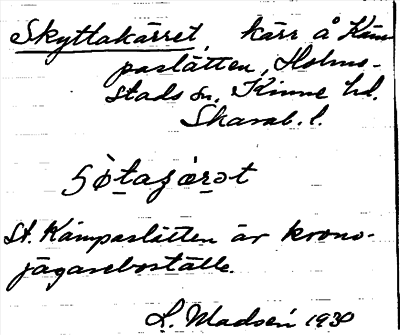 Skyttakärret, kärr å Käm-
paslätten, Holme-
stads sn. Kinne hd.
Skarab. l.
St. Kämpaslätten är krono-
jägareboställe.
L. Madsén 1930